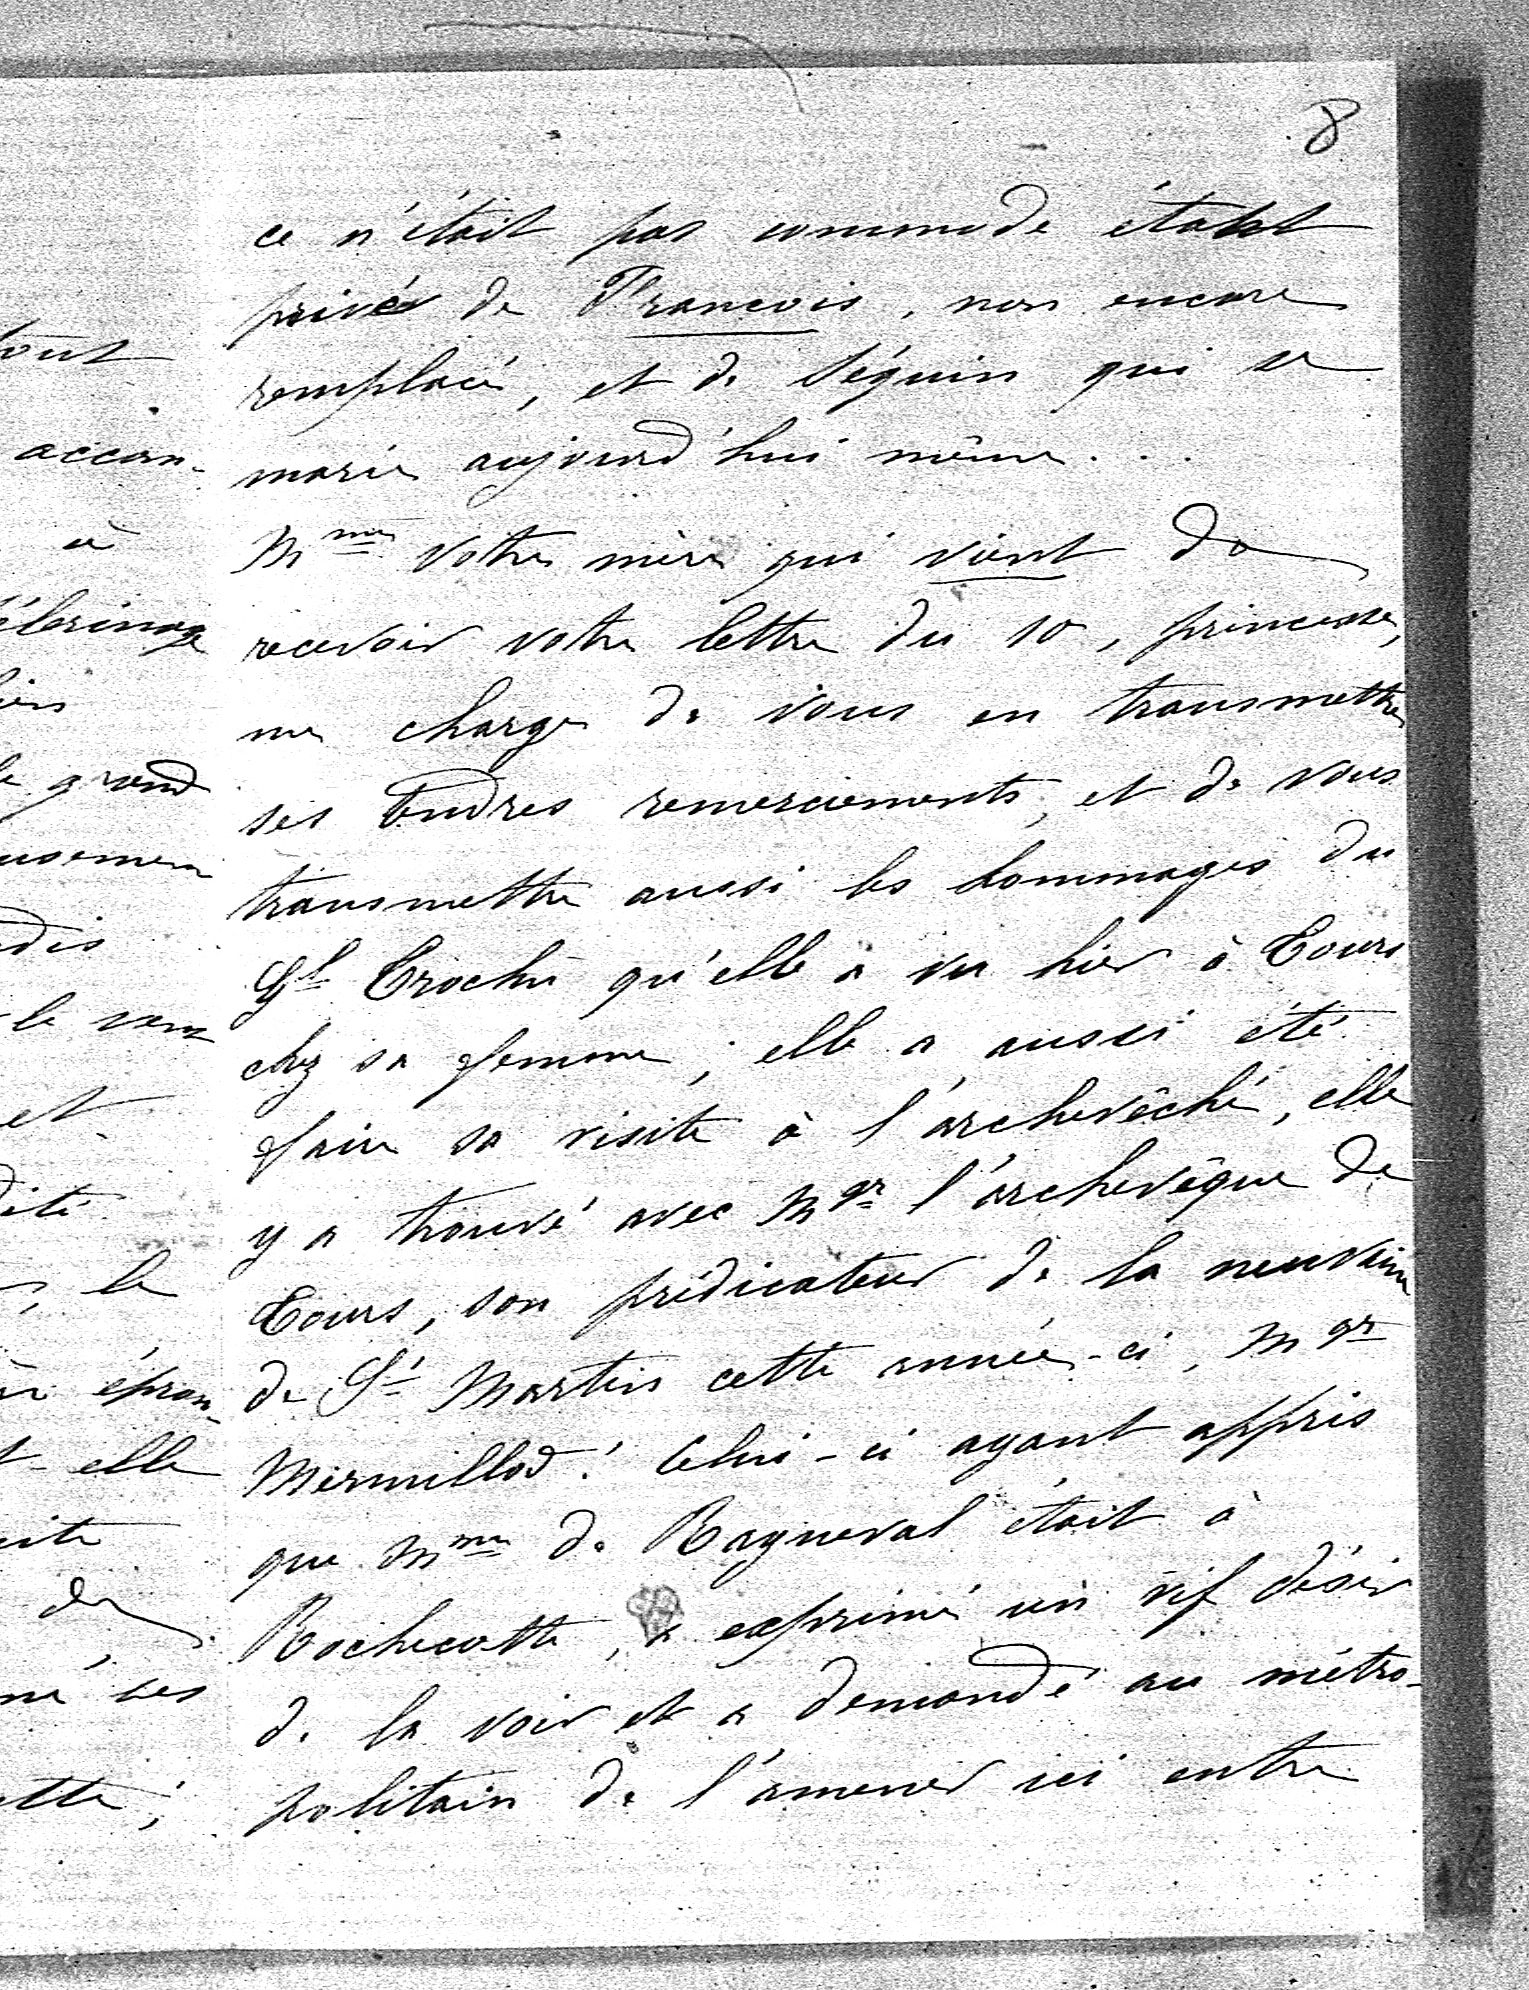 8
ce n'était pas commode étant
privés de François, non encore
remplacé, et de Séguin qui se
marie aujourd'hui même...
Mme votre mère qui vient de
recevoir votre lettre du 10, princesse,
me charge de vous en transmettre
ses tendres remerciements, et de vous
transmettre aussi les hommages du
Gl Trochu qu'elle a vu hier à Tours
chez sa femme; elle a aussi été
faire sa visite à l'archevêché, elle
y a trouvé avec Mgr l'archevêque de
Tours, son prédicateur de la neuvaine
de St Martin cette année-ci, Mgr
Mermillod! Celui-ci ayant appris
que Mme de Rayneval était à
Rochecotte, a exprimé un vif désir
de la voir et a demandé au métro-
politain de l'amener ici entre
accom-
à
le grand
et
le
elle
de
ses